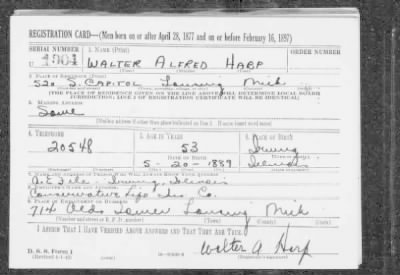 REGISTRATION CARD—(Men born on or after April 28, 1877 and on or before February 16, 1897)
SERIAL NUMBER 1. NAME (Print)
U 1904 WALTER ALFRED HARP
2. PLACE OF RESIDENCE (Print)
520 S. CAPITOL Lansing Mich
(THE PLACE OF RESIDENCE GIVEN ON THE LINE ABOVE WILL DETERMINE LOCAL BOARD
JURISDICTION; LINE 2 OF REGISTRATION CERTIFICATE WILL BE IDENTICAL)
3. MAILING ADDRESS
Same
(Mailing address if other than place indicated on line 2. If same insert word same)
4. TELEPHONE 5. AGE IN YEARS 6. PLACE OF BIRTH
20548 53 Irving
DATE OF BIRTH
5-20-1889 Illinois
7. NAME AND ADDRESS OF PERSON WHO WILL ALWAYS KNOW YOUR ADDRESS
Irving, Illinois
8. EMPLOYER'S NAME AND ADDRESS
Conservative Life Ins Co.
9. PLACE OF EMPLOYMENT OR BUSINESS
714 Olds Tower Lansing Mich
(Number and street or R. F. D. number) (Town) (County) (State)
I AFFIRM THAT I HAVE VERIFIED ABOVE ANSWERS AND THAT THEY ARE TRUE.
D. S. S. Form 1
Walter A Harp